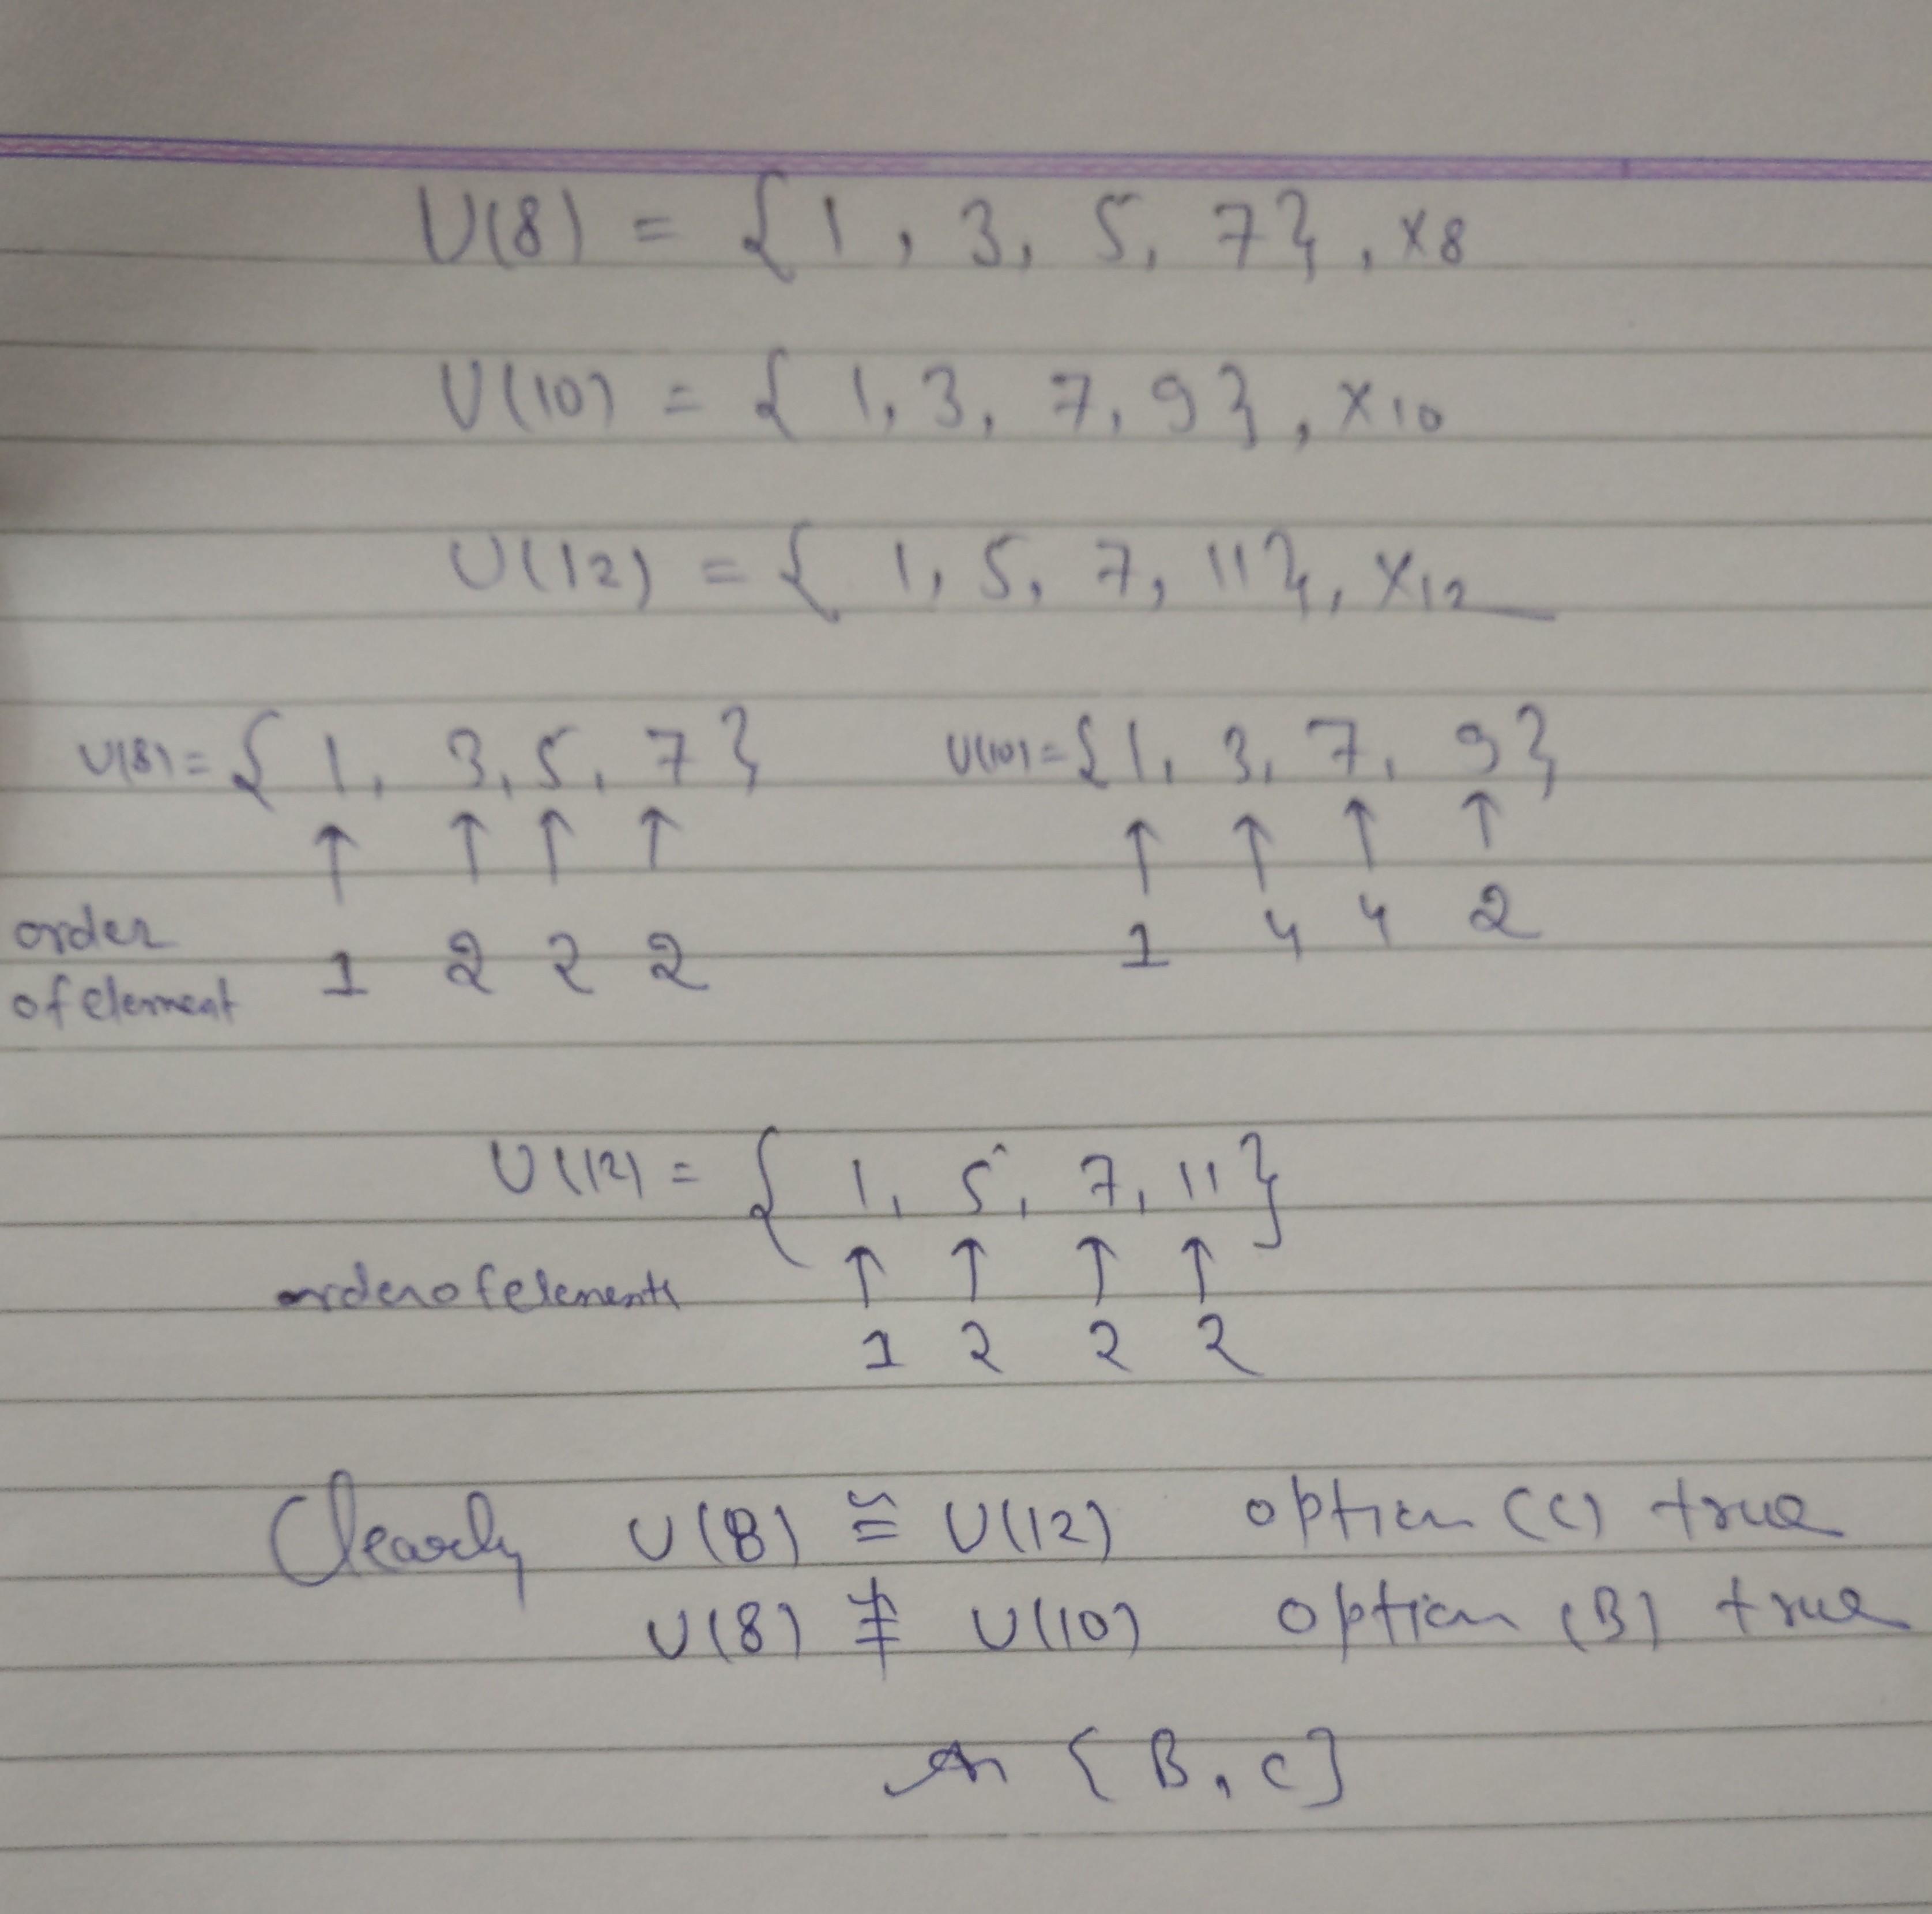 U(8) = { 1 , 3, 5, 7}, ×8
U(10) = { 1, 3, 7, 9}, ×10
U(12) = { 1, 5, 7, 11}, ×12
U(8) = { 1, 3, 5, 7 } U(10) = { 1, 3, 7, 9 }
↑ ↑ ↑ ↑ ↑ ↑ ↑ ↑
order of element 1 2 2 2 1 4 4 2
U(12) = { 1, 5, 7, 11 }
order of elements ↑ ↑ ↑ ↑
1 2 2 2
Clearly U(8) ≅ U(12) option (C) true
U(8) ≇ U(10) option (B) true
An { B, C }